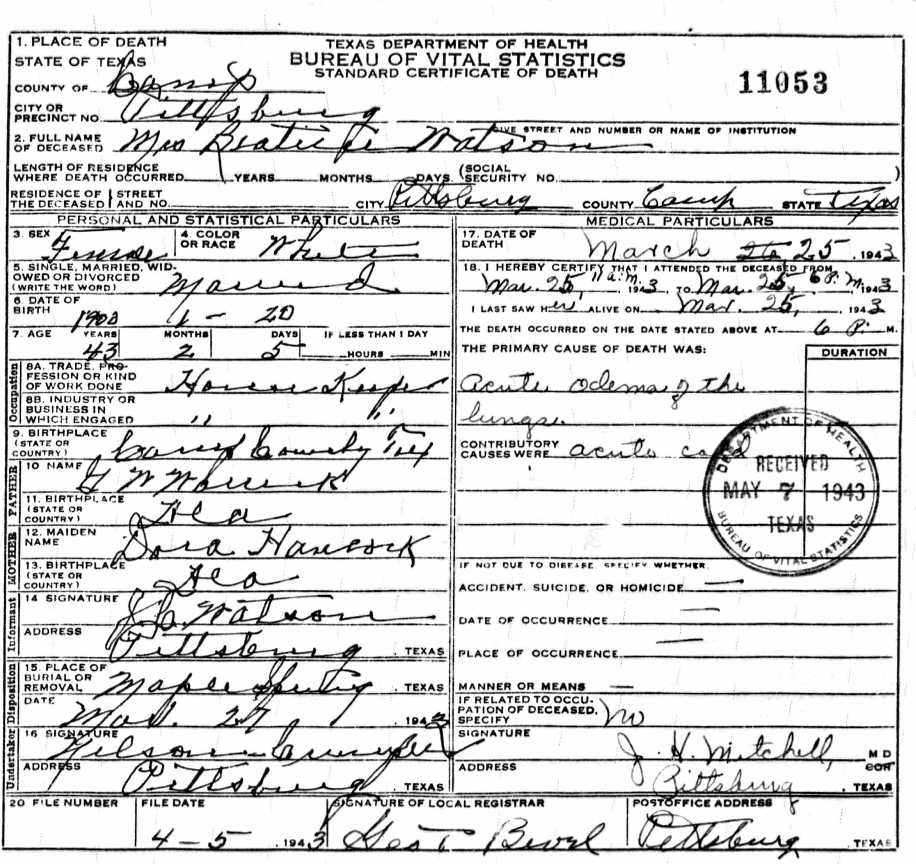 1. PLACE OF DEATH
STATE OF TEXAS
TEXAS DEPARTMENT OF HEALTH
BUREAU OF VITAL STATISTICS
STANDARD CERTIFICATE OF DEATH
11053
COUNTY OF Camp
CITY OR PRECINCT NO. Pittsburg
GIVE STREET AND NUMBER OR NAME OF INSTITUTION
2. FULL NAME OF DECEASED Mrs Watson
LENGTH OF RESIDENCE WHERE DEATH OCCURRED YEARS MONTHS DAYS (SOCIAL SECURITY NO. )
RESIDENCE OF THE DECEASED STREET AND NO. CITY Pittsburg COUNTY Camp STATE Texas
PERSONAL AND STATISTICAL PARTICULARS
3. SEX Female 4. COLOR OR RACE White
5. SINGLE, MARRIED, WIDOWED OR DIVORCED (WRITE THE WORD) Married
6 DATE OF BIRTH 1900 1 - 20
7. AGE YEARS MONTHS DAYS IF LESS THAN 1 DAY
43 2 5 HOURS MIN
Occupation
8A. TRADE, PROFESSION OR KIND OF WORK DONE House Keeper
8B. INDUSTRY OR BUSINESS IN WHICH ENGAGED " "
9. BIRTHPLACE (STATE OR COUNTRY) Camp County Tex
FATHER
10 NAME G W
11. BIRTHPLACE (STATE OR COUNTRY)
MOTHER
12. MAIDEN NAME Dora Hancock
13. BIRTHPLACE (STATE OR COUNTRY)
Informant
14 SIGNATURE Watson
ADDRESS Pittsburg, TEXAS
Undertaker Disposition
15. PLACE OF BURIAL OR REMOVAL Maple Spring, TEXAS
DATE Mar. 27, 1943
16 SIGNATURE
ADDRESS Pittsburg, TEXAS
MEDICAL PARTICULARS
17. DATE OF DEATH March 25, 1943
18. I HEREBY CERTIFY THAT I ATTENDED THE DECEASED FROM
Mar. 25, 11 a.m. 1943 TO Mar. 25, 6 P. M. 1943
I LAST SAW Her ALIVE ON Mar. 25, 1943
THE DEATH OCCURRED ON THE DATE STATED ABOVE AT 6 P. M.
THE PRIMARY CAUSE OF DEATH WAS: DURATION
Acute odema of the
lungs.
CONTRIBUTORY CAUSES WERE acute
DEPARTMENT OF HEALTH
RECEIVED
MAY 7 1943
TEXAS
BUREAU OF VITAL STATISTICS
IF NOT DUE TO DISEASE, SPECIFY WHETHER.
ACCIDENT, SUICIDE, OR HOMICIDE —
DATE OF OCCURRENCE —
PLACE OF OCCURRENCE —
MANNER OR MEANS —
IF RELATED TO OCCUPATION OF DECEASED, SPECIFY No
SIGNATURE J. H. Mitchell, M D
ADDRESS Pittsburg, TEXAS
20 FILE NUMBER FILE DATE SIGNATURE OF LOCAL REGISTRAR POSTOFFICE ADDRESS
4-5 1943 Pittsburg, TEXAS